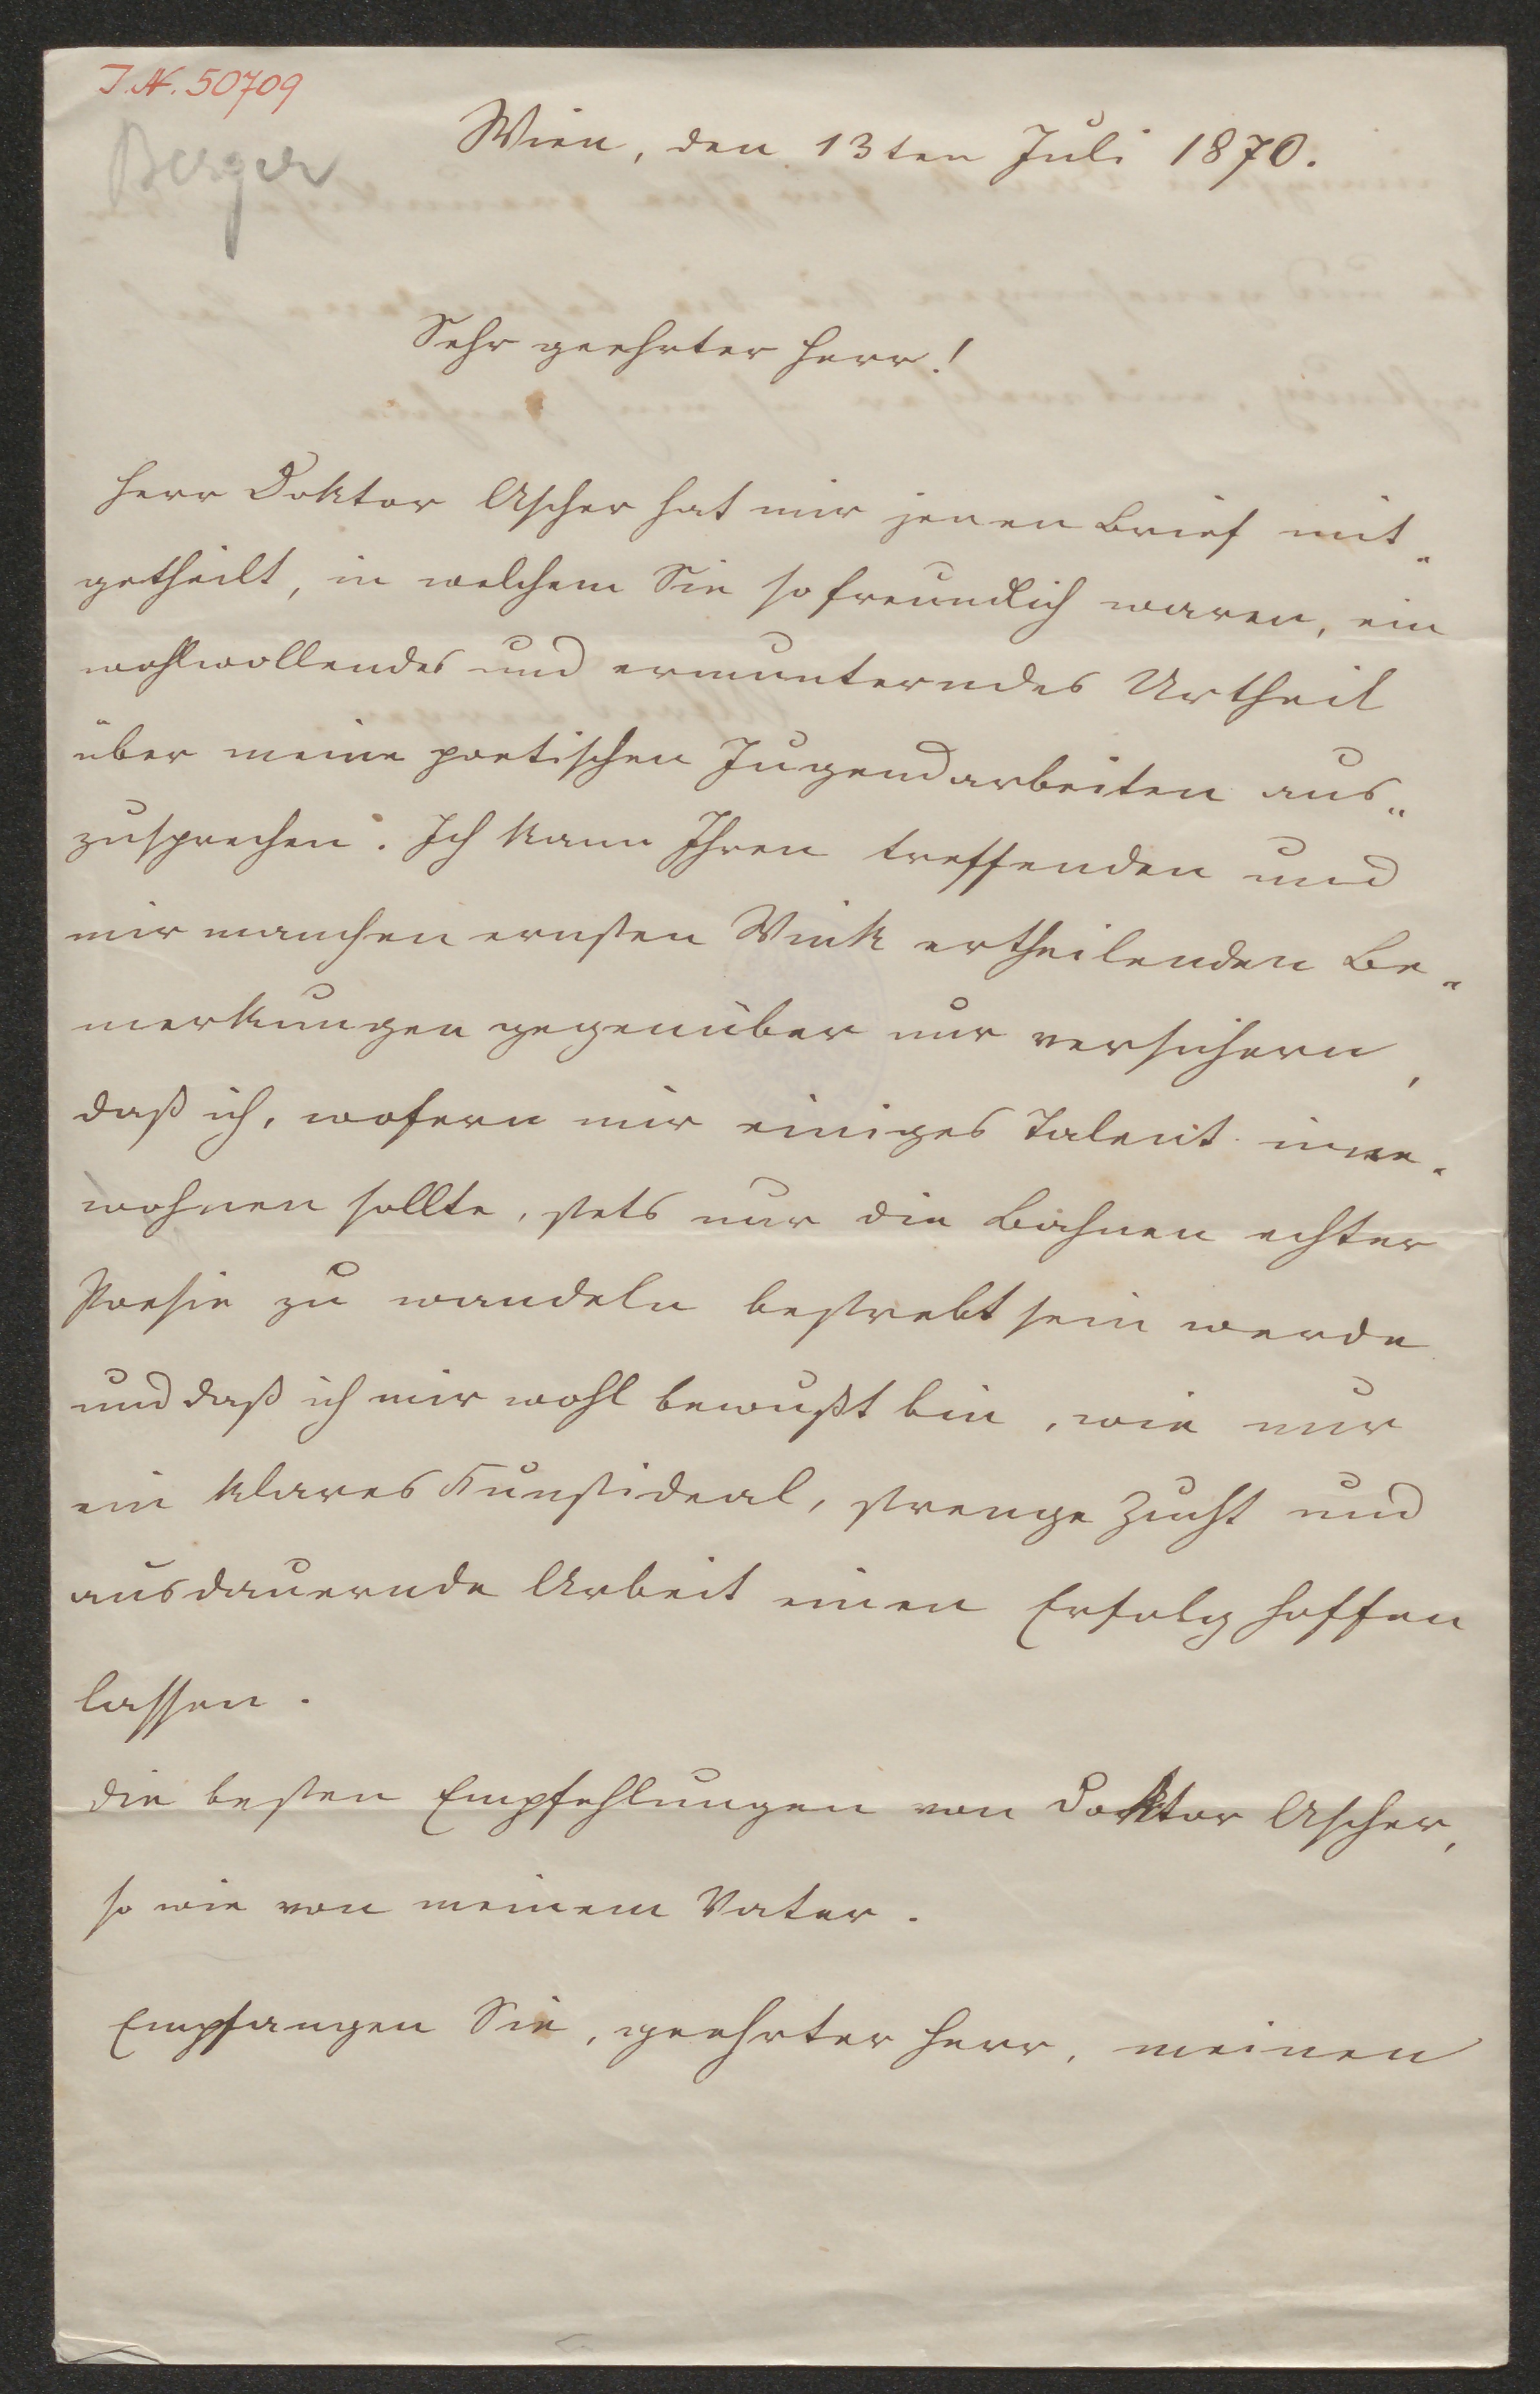 J.N. 50709
Berger
Wien, den 13ten Juli 1870.
Sehr geehrter Herr!
Herr Doktor Ascher hat mir jenen Brief mit-
getheilt, in welchem Sie so freundlich waren, ein
wohlwollendes und ermunterndes Urtheil
über meine poetischen Jugendarbeiten aus-
zusprechen. Ich kann Ihren treffenden und
mir manchen ernsten Wink ertheilenden Be-
merkungen gegenüber nur versichern,
daß ich, wofern mir einiges Talent inne-
wohnen sollte, stets nur die Bahnen echter
Poesie zu wandeln bestrebt sein werde
und daß ich mir wohl bewußt bin, wie nur
ein klares Kunstideal, strenge Zucht und
ausdauernde Arbeit einen Erfolg hoffen
lassen.
Die besten Empfehlungen von Doktor Ascher,
so wie von meinem Vater.
Empfangen Sie, geehrter Herr, meinen